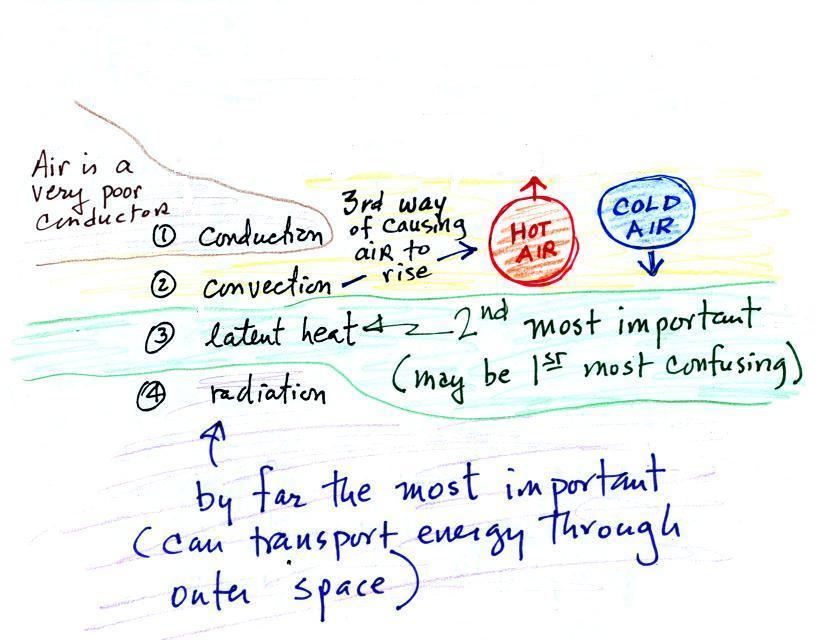 Air is a
very poor
conductor
① conduction
② convection
3rd way
of causing
air to
rise
HOT
AIR
COLD
AIR
③ latent heat
2nd most important
(may be 1st most confusing)
④ radiation
by far the most important
(can transport energy through
outer space)